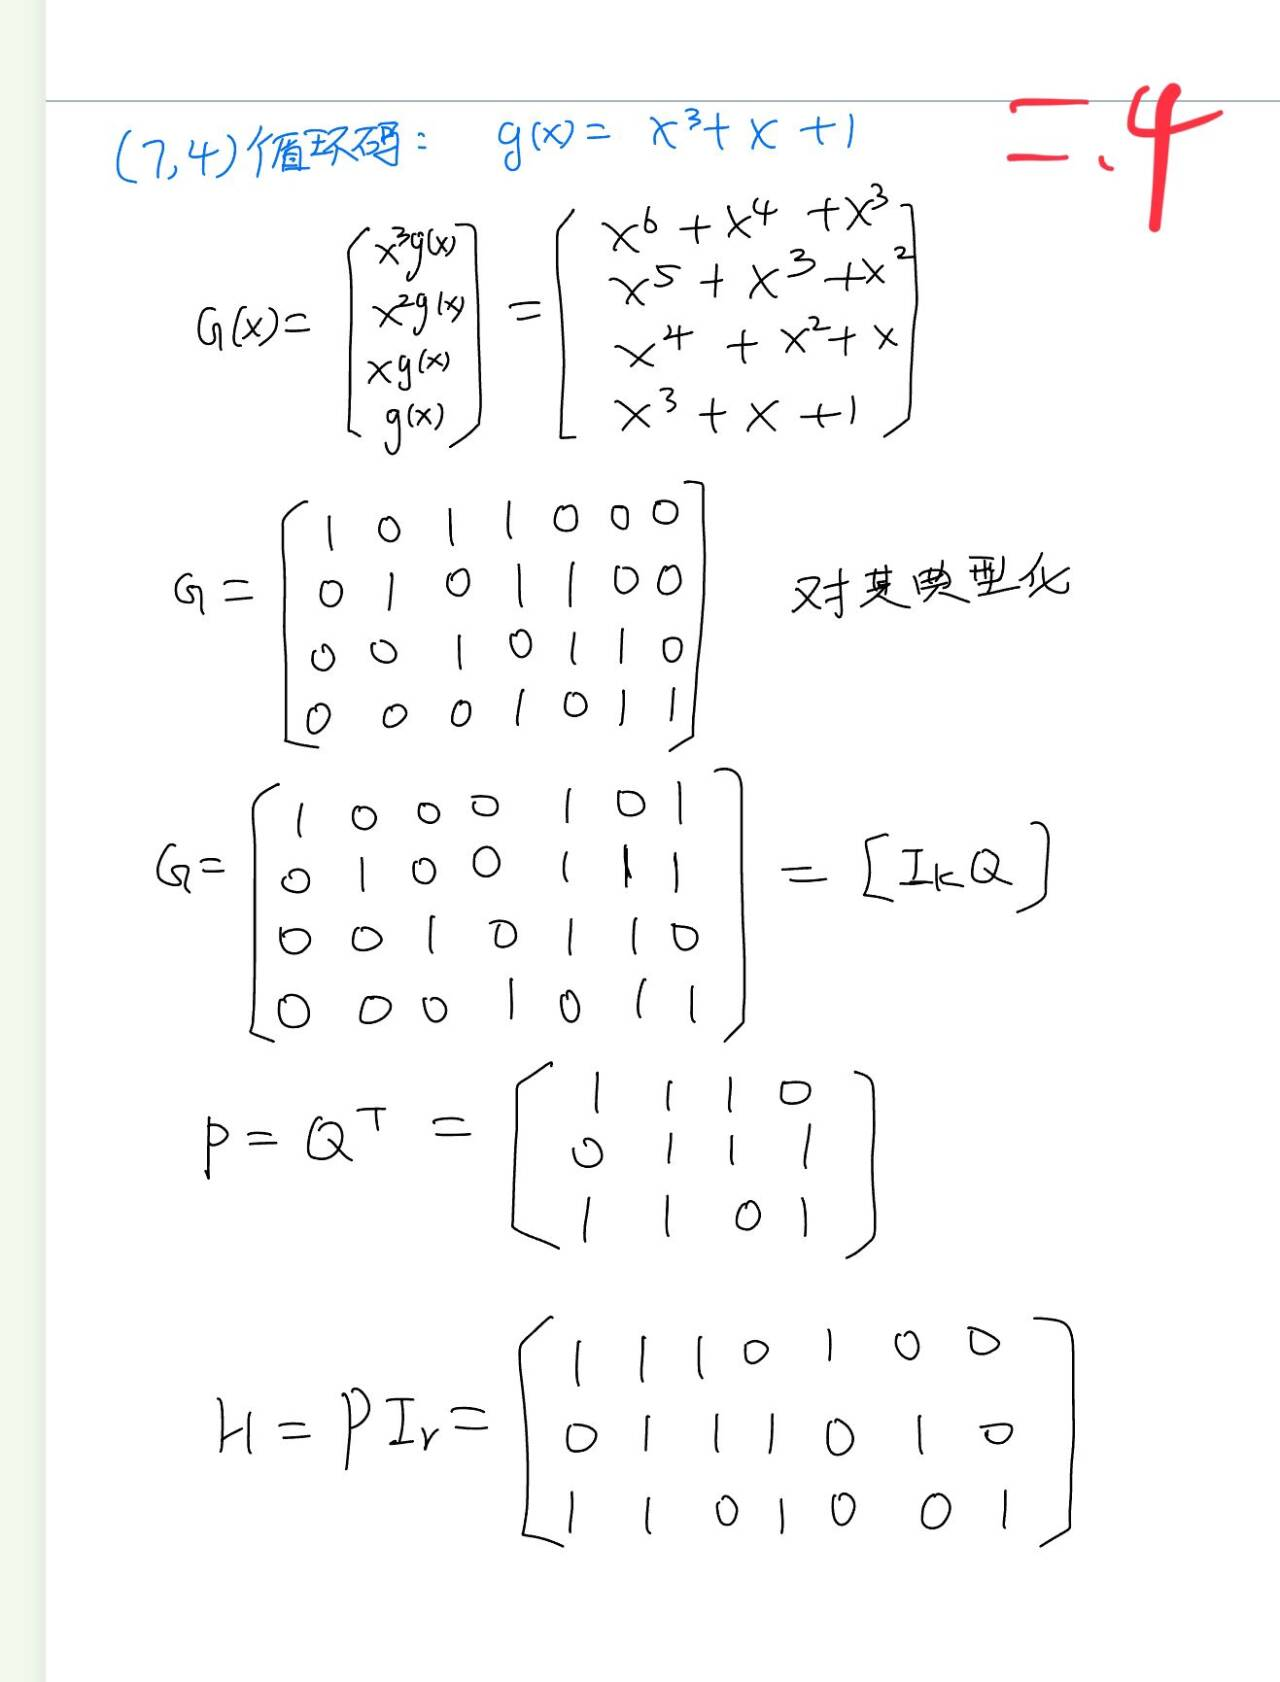 二.4
(7,4)循环码: g(x)= x³+x+1
G(x)= [x³g(x) x²g(x) xg(x) g(x)] = [x⁶+x⁴+x³
x⁵+x³+x²
x⁴+x²+x
x³+x+1]
G= [1 0 1 1 0 0 0
0 1 0 1 1 0 0 对其典型化
0 0 1 0 1 1 0
0 0 0 1 0 1 1]
G= [1 0 0 0 1 0 1
0 1 0 0 1 1 1 = [IₖQ]
0 0 1 0 1 1 0
0 0 0 1 0 1 1]
P=Qᵀ= [1 1 1 0
0 1 1 1
1 1 0 1]
H=PIᵣ= [1 1 1 0 1 0 0
0 1 1 1 0 1 0
1 1 0 1 0 0 1]